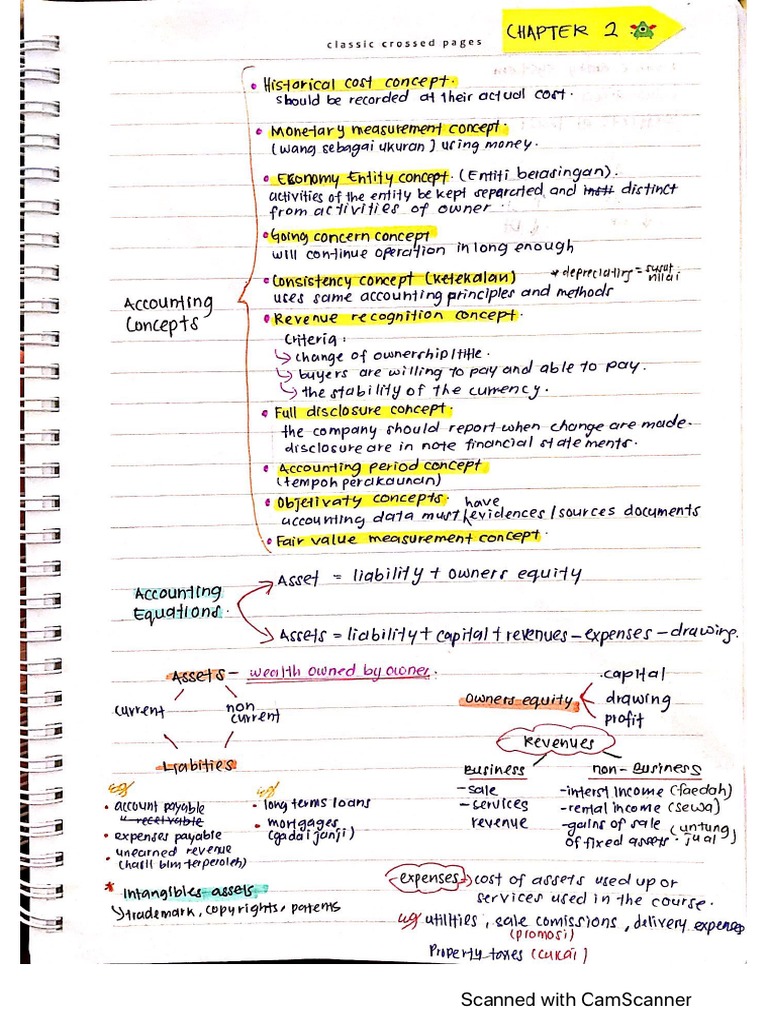 classic crossed pages
CHAPTER 2
Accounting Concepts
• Historical cost concept.
should be recorded at their actual cost.
• Monetary measurement concept.
(wang sebagai ukuran) using money.
• Ekonomy Entity concept. (Entiti berasingan).
activities of the entity be kept separated and distinct
from activities of owner.
• Going concern concept
will continue operation in long enough
• Consistency concept (ketekalan) * depreciating = susut nilai
uses same accounting principles and methods
• Revenue recognition concept.
criteria:
↳ change of ownership/title.
↳ buyers are willing to pay and able to pay.
↳ the stability of the currency.
• Full disclosure concept.
the company should report when change are made.
disclosure are in note financial statements.
• Accounting period concept
(tempoh perakaunan)
• Objetivaty concepts.
accounting data must have evidences/sources documents
• Fair value measurement concept.
Accounting Equations.
Asset = liability + owners equity
Assets = liability + capital + revenues - expenses - drawing.
Assets - wealth owned by owner.
current
non current
Liabities
eg
• account payable
receivable
• expenses payable
• unearned revenue
(hasil blm terperoleh)
eg
• long terms loans
• mortgages
(gadai janji)
* Intangibles assets
↳ trademark, copyrights, patents
Owners equity
. capital
drawing
profit
Revenues
Business
- sale
- services
revenue
non-Business
- interst income (faedah)
- rental income (sewa)
- gains of sale (untung jual)
of fixed assets.
expenses → cost of assets used up or
services used in the course.
eg utilties, sale comissions, delivery expenses
(promosi)
Property taxes (cukai)
Scanned with CamScanner